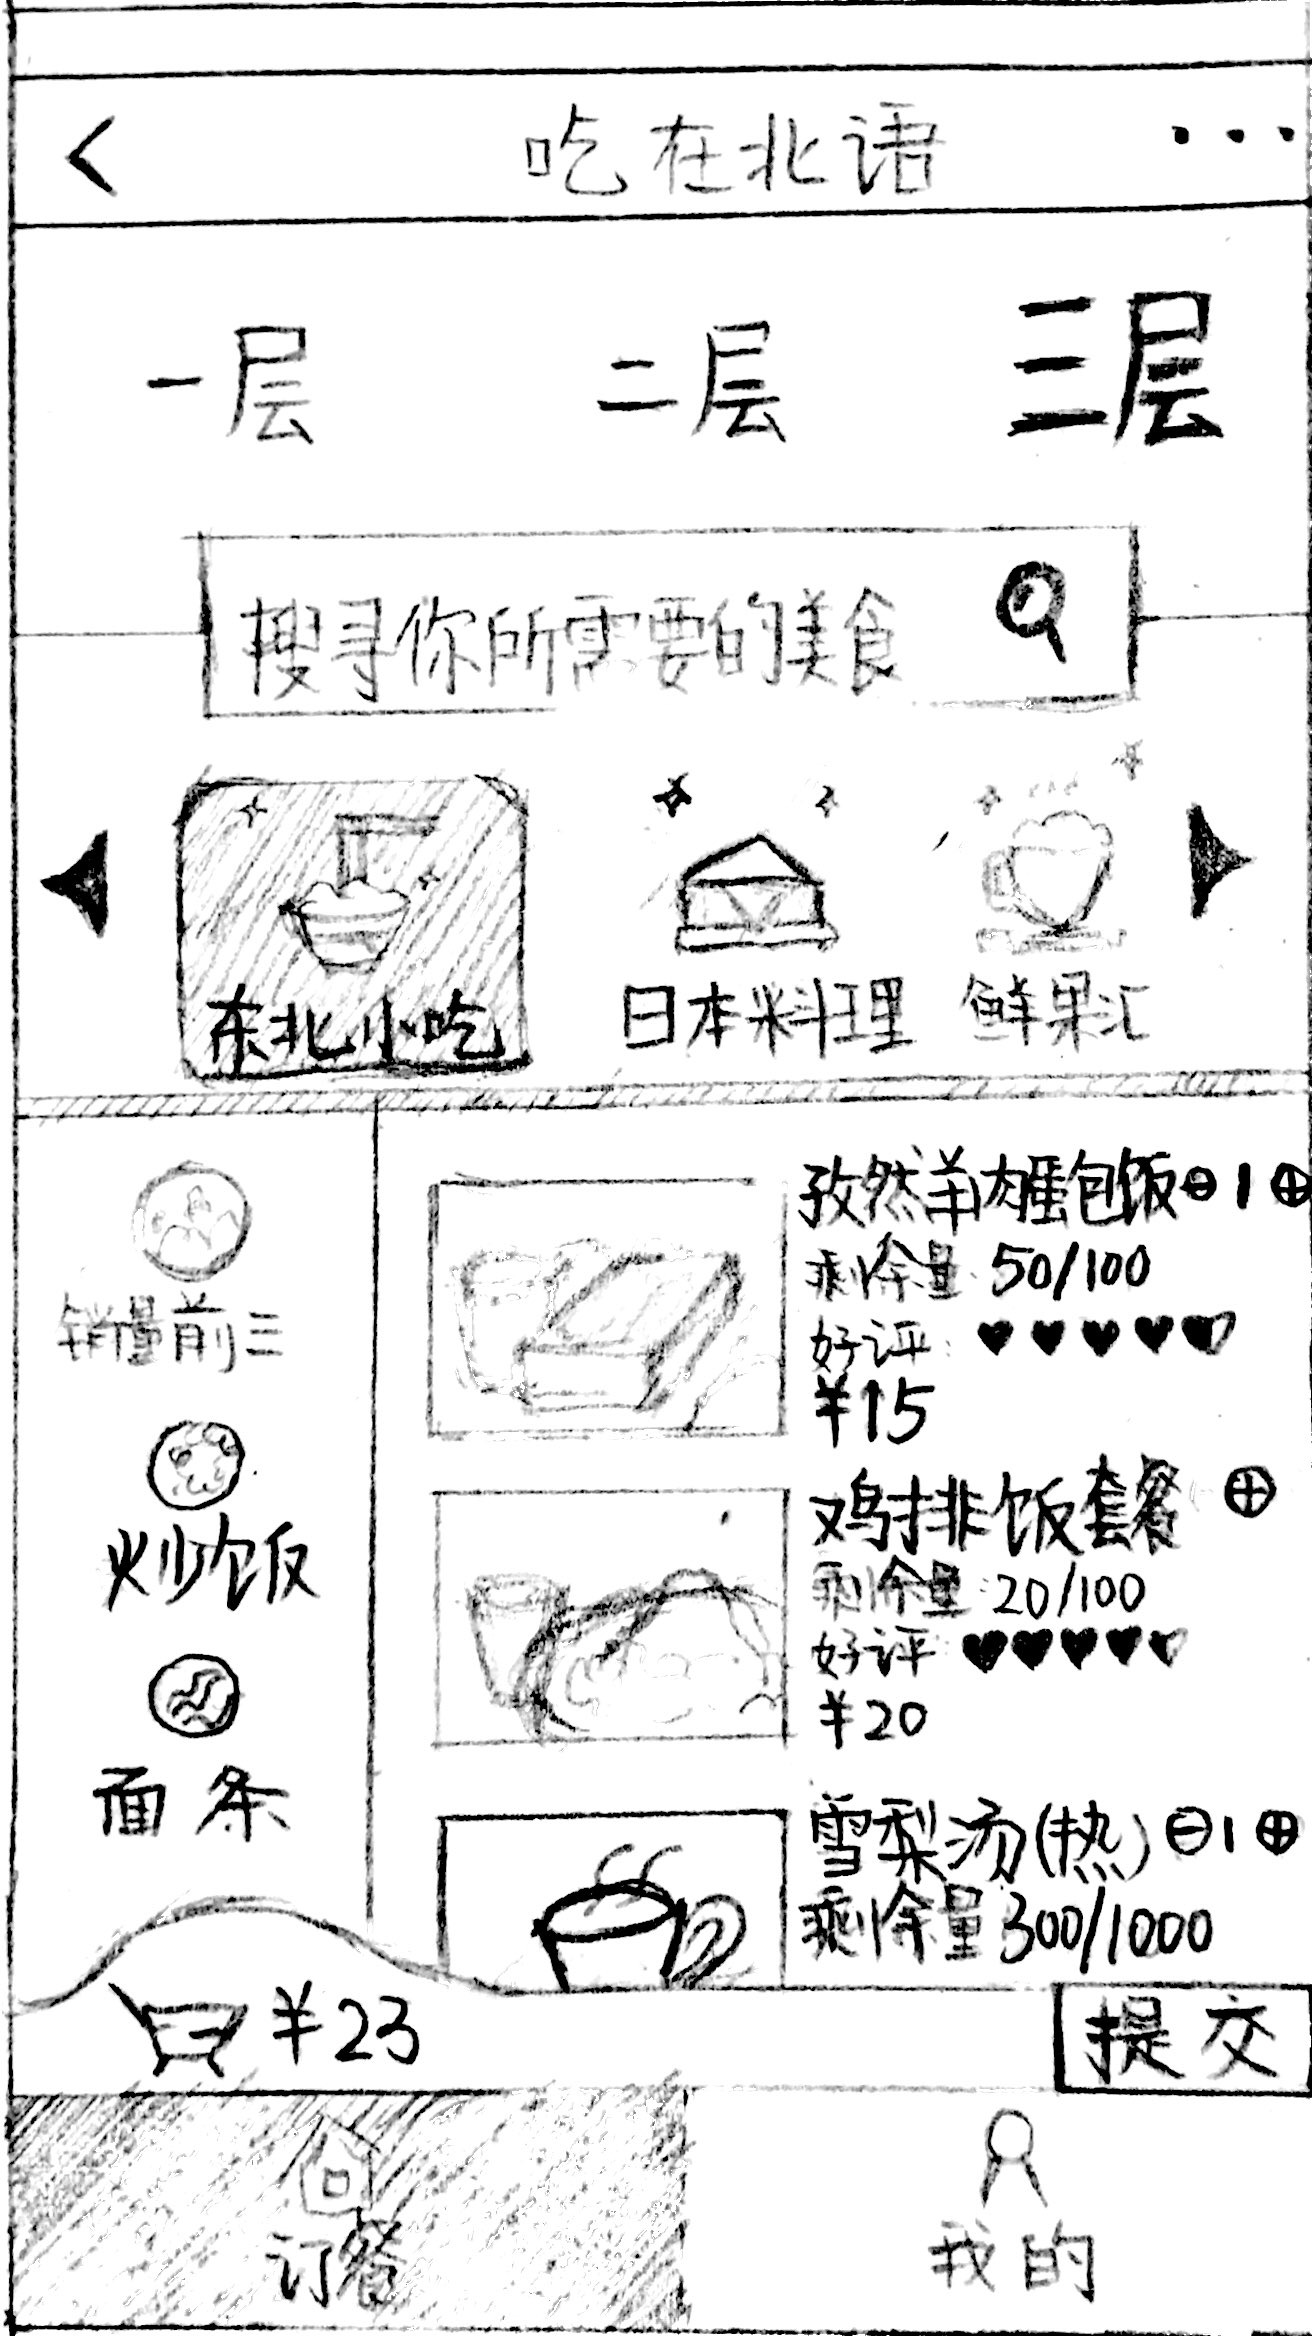 吃在北语
一层 二层 三层
搜寻你所需要的美食
东北小吃 日本料理 鲜果汇
销量前三
炒饭
面条
孜然羊肉蛋包饭 ⊖ 1 ⊕
剩余量: 50/100
好评:
¥15
鸡排饭套餐 ⊕
剩余量: 20/100
好评
¥20
雪梨汤(热) ⊖ 1 ⊕
剩余量 300/1000
¥23 提交
订餐 我的